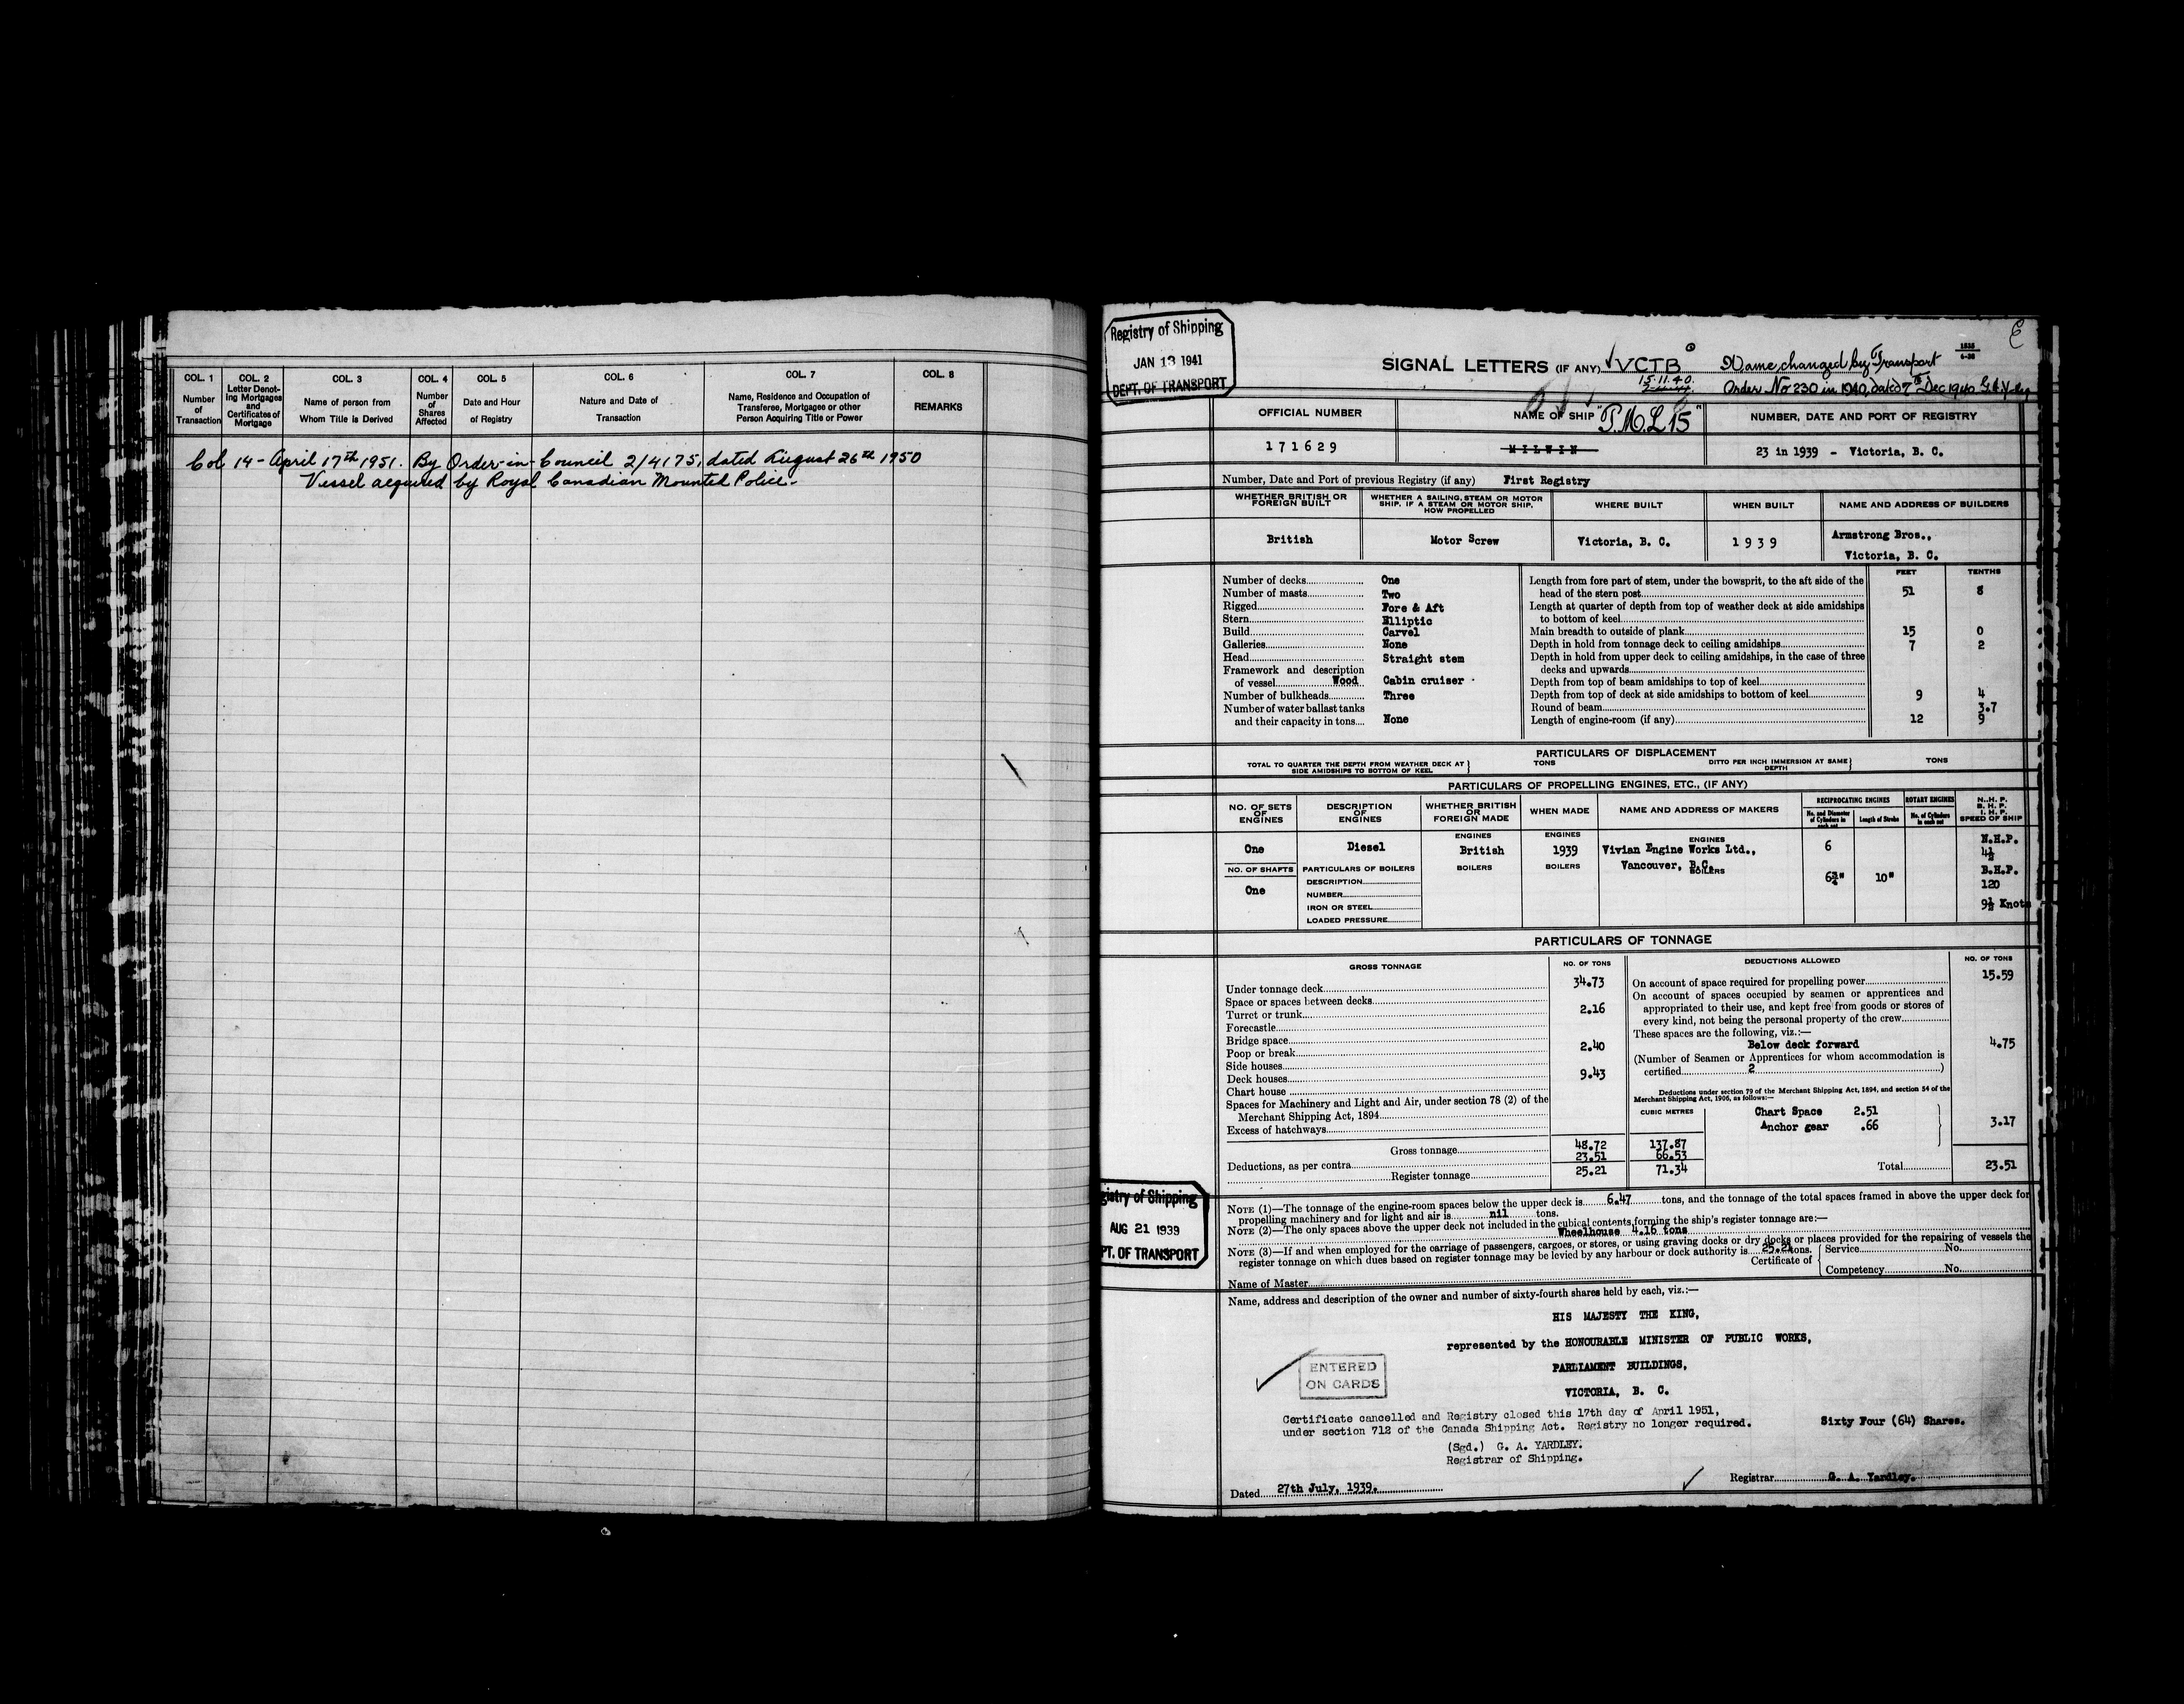 COL. 1
Number
of
Transaction
COL. 2
Letter Denot-
ing Mortgages
and
Certificates of
Mortgage
COL. 3
Name of person from
Whom Title is Derived
COL. 4
Number
of
Shares
Affected
COL. 5
Date and Hour
of Registry
COL. 6
Nature and Date of
Transaction
COL. 7
Name, Residence and Occupation of
Transferee, Mortgagee or other
Person Acquiring Title or Power
COL. 8
REMARKS
Col 14 - April 17th 1951. By Order-in-Council 2/4175, dated August 26th 1950
Vessel acquired by Royal Canadian Mounted Police.
Registry of Shipping
JAN 13 1941
DEPT. OF TRANSPORT
SIGNAL LETTERS (IF ANY) VCTB
15.11.40.
Name changed by Transport
Order No 230 in 1940, dated 7th Dec 1940
OFFICIAL NUMBER
171629
NAME OF SHIP "P.M.L. 15"
MILWIN
NUMBER, DATE AND PORT OF REGISTRY
23 in 1939 - Victoria, B. C.
Number, Date and Port of previous Registry (if any) First Registry
WHETHER BRITISH OR
FOREIGN BUILT
British
WHETHER A SAILING, STEAM OR MOTOR
SHIP, IF A STEAM OR MOTOR SHIP,
HOW PROPELLED
Motor Screw
WHERE BUILT
Victoria, B. C.
WHEN BUILT
1939
NAME AND ADDRESS OF BUILDERS
Armstrong Bros.,
Victoria, B. C.
Number of decks One
Number of masts Two
Rigged Fore & Aft
Stern Elliptic
Build Carvel
Galleries None
Head Straight stem
Framework and description
of vessel Wood Cabin cruiser
Number of bulkheads Three
Number of water ballast tanks
and their capacity in tons None
FEET TENTHS
Length from fore part of stem, under the bowsprit, to the aft side of the
head of the stern post 51 8
Length at quarter of depth from top of weather deck at side amidships
to bottom of keel
Main breadth to outside of plank 15 0
Depth in hold from tonnage deck to ceiling amidships 7 2
Depth in hold from upper deck to ceiling amidships, in the case of three
decks and upwards
Depth from top of beam amidships to top of keel
Depth from top of deck at side amidships to bottom of keel 9 4
Round of beam 3.7
Length of engine-room (if any) 12 9
PARTICULARS OF DISPLACEMENT
TOTAL TO QUARTER THE DEPTH FROM WEATHER DECK AT
SIDE AMIDSHIPS TO BOTTOM OF KEEL
TONS
DITTO PER INCH IMMERSION AT SAME
DEPTH
TONS
PARTICULARS OF PROPELLING ENGINES, ETC., (IF ANY)
NO. OF SETS
OF
ENGINES
One
NO. OF SHAFTS
One
DESCRIPTION
OF
ENGINES
Diesel
PARTICULARS OF BOILERS
DESCRIPTION
NUMBER
IRON OR STEEL
LOADED PRESSURE
WHETHER BRITISH
OR
FOREIGN MADE
ENGINES
British
BOILERS
WHEN MADE
ENGINES
1939
BOILERS
NAME AND ADDRESS OF MAKERS
ENGINES
Vivian Engine Works Ltd.,
Vancouver, B.C.
BOILERS
RECIPROCATING ENGINES
No. and Diameter
of Cylinders in
each set
6
6¾"
Length of Stroke
10"
ROTARY ENGINES
No. of Cylinders
in each set
N.H.P.
B.H.P.
I.H.P.
SPEED OF SHIP
N.H.P.
4½
B.H.P.
120
9½ Knots
PARTICULARS OF TONNAGE
GROSS TONNAGE
NO. OF TONS
Under tonnage deck 34.73
Space or spaces between decks
Turret or trunk 2.16
Forecastle
Bridge space
Poop or break 2.40
Side houses
Deck houses 9.43
Chart house
Spaces for Machinery and Light and Air, under section 78 (2) of the
Merchant Shipping Act, 1894
Excess of hatchways
CUBIC METRES
Gross tonnage 48.72 137.87
Deductions, as per contra 23.51 66.53
Register tonnage 25.21 71.34
DEDUCTIONS ALLOWED
NO. OF TONS
On account of space required for propelling power 15.59
On account of spaces occupied by seamen or apprentices and
appropriated to their use, and kept free from goods or stores of
every kind, not being the personal property of the crew
These spaces are the following, viz.:—
Below deck forward 4.75
(Number of Seamen or Apprentices for whom accommodation is
certified 2 )
Deductions under section 79 of the Merchant Shipping Act, 1894, and section 54 of the
Merchant Shipping Act, 1906, as follows:—
Chart Space 2.51
Anchor gear .66
3.17
Total 23.51
Registry of Shipping
AUG 21 1939
DEPT. OF TRANSPORT
NOTE (1)—The tonnage of the engine-room spaces below the upper deck is 6.47 tons, and the tonnage of the total spaces framed in above the upper deck for
propelling machinery and for light and air is nil tons.
NOTE (2)—The only spaces above the upper deck not included in the cubical contents forming the ship's register tonnage are:—
Wheelhouse 4.16 tons
NOTE (3)—If and when employed for the carriage of passengers, cargoes, or stores, or using graving docks or dry docks or places provided for the repairing of vessels the
register tonnage on which dues based on register tonnage may be levied by any harbour or dock authority is 25.21 tons.
Certificate of { Service No.
Competency No.
Name of Master
Name, address and description of the owner and number of sixty-fourth shares held by each, viz.:—
HIS MAJESTY THE KING,
represented by the HONOURABLE MINISTER OF PUBLIC WORKS,
PARLIAMENT BUILDINGS,
VICTORIA, B. C.
ENTERED
ON CARDS
Certificate cancelled and Registry closed this 17th day of April 1951,
under section 712 of the Canada Shipping Act. Registry no longer required.
Sixty Four (64) Shares.
(Sgd.) G. A. YARDLEY.
Registrar of Shipping.
Registrar G. A. Yardley.
Dated 27th July, 1939.